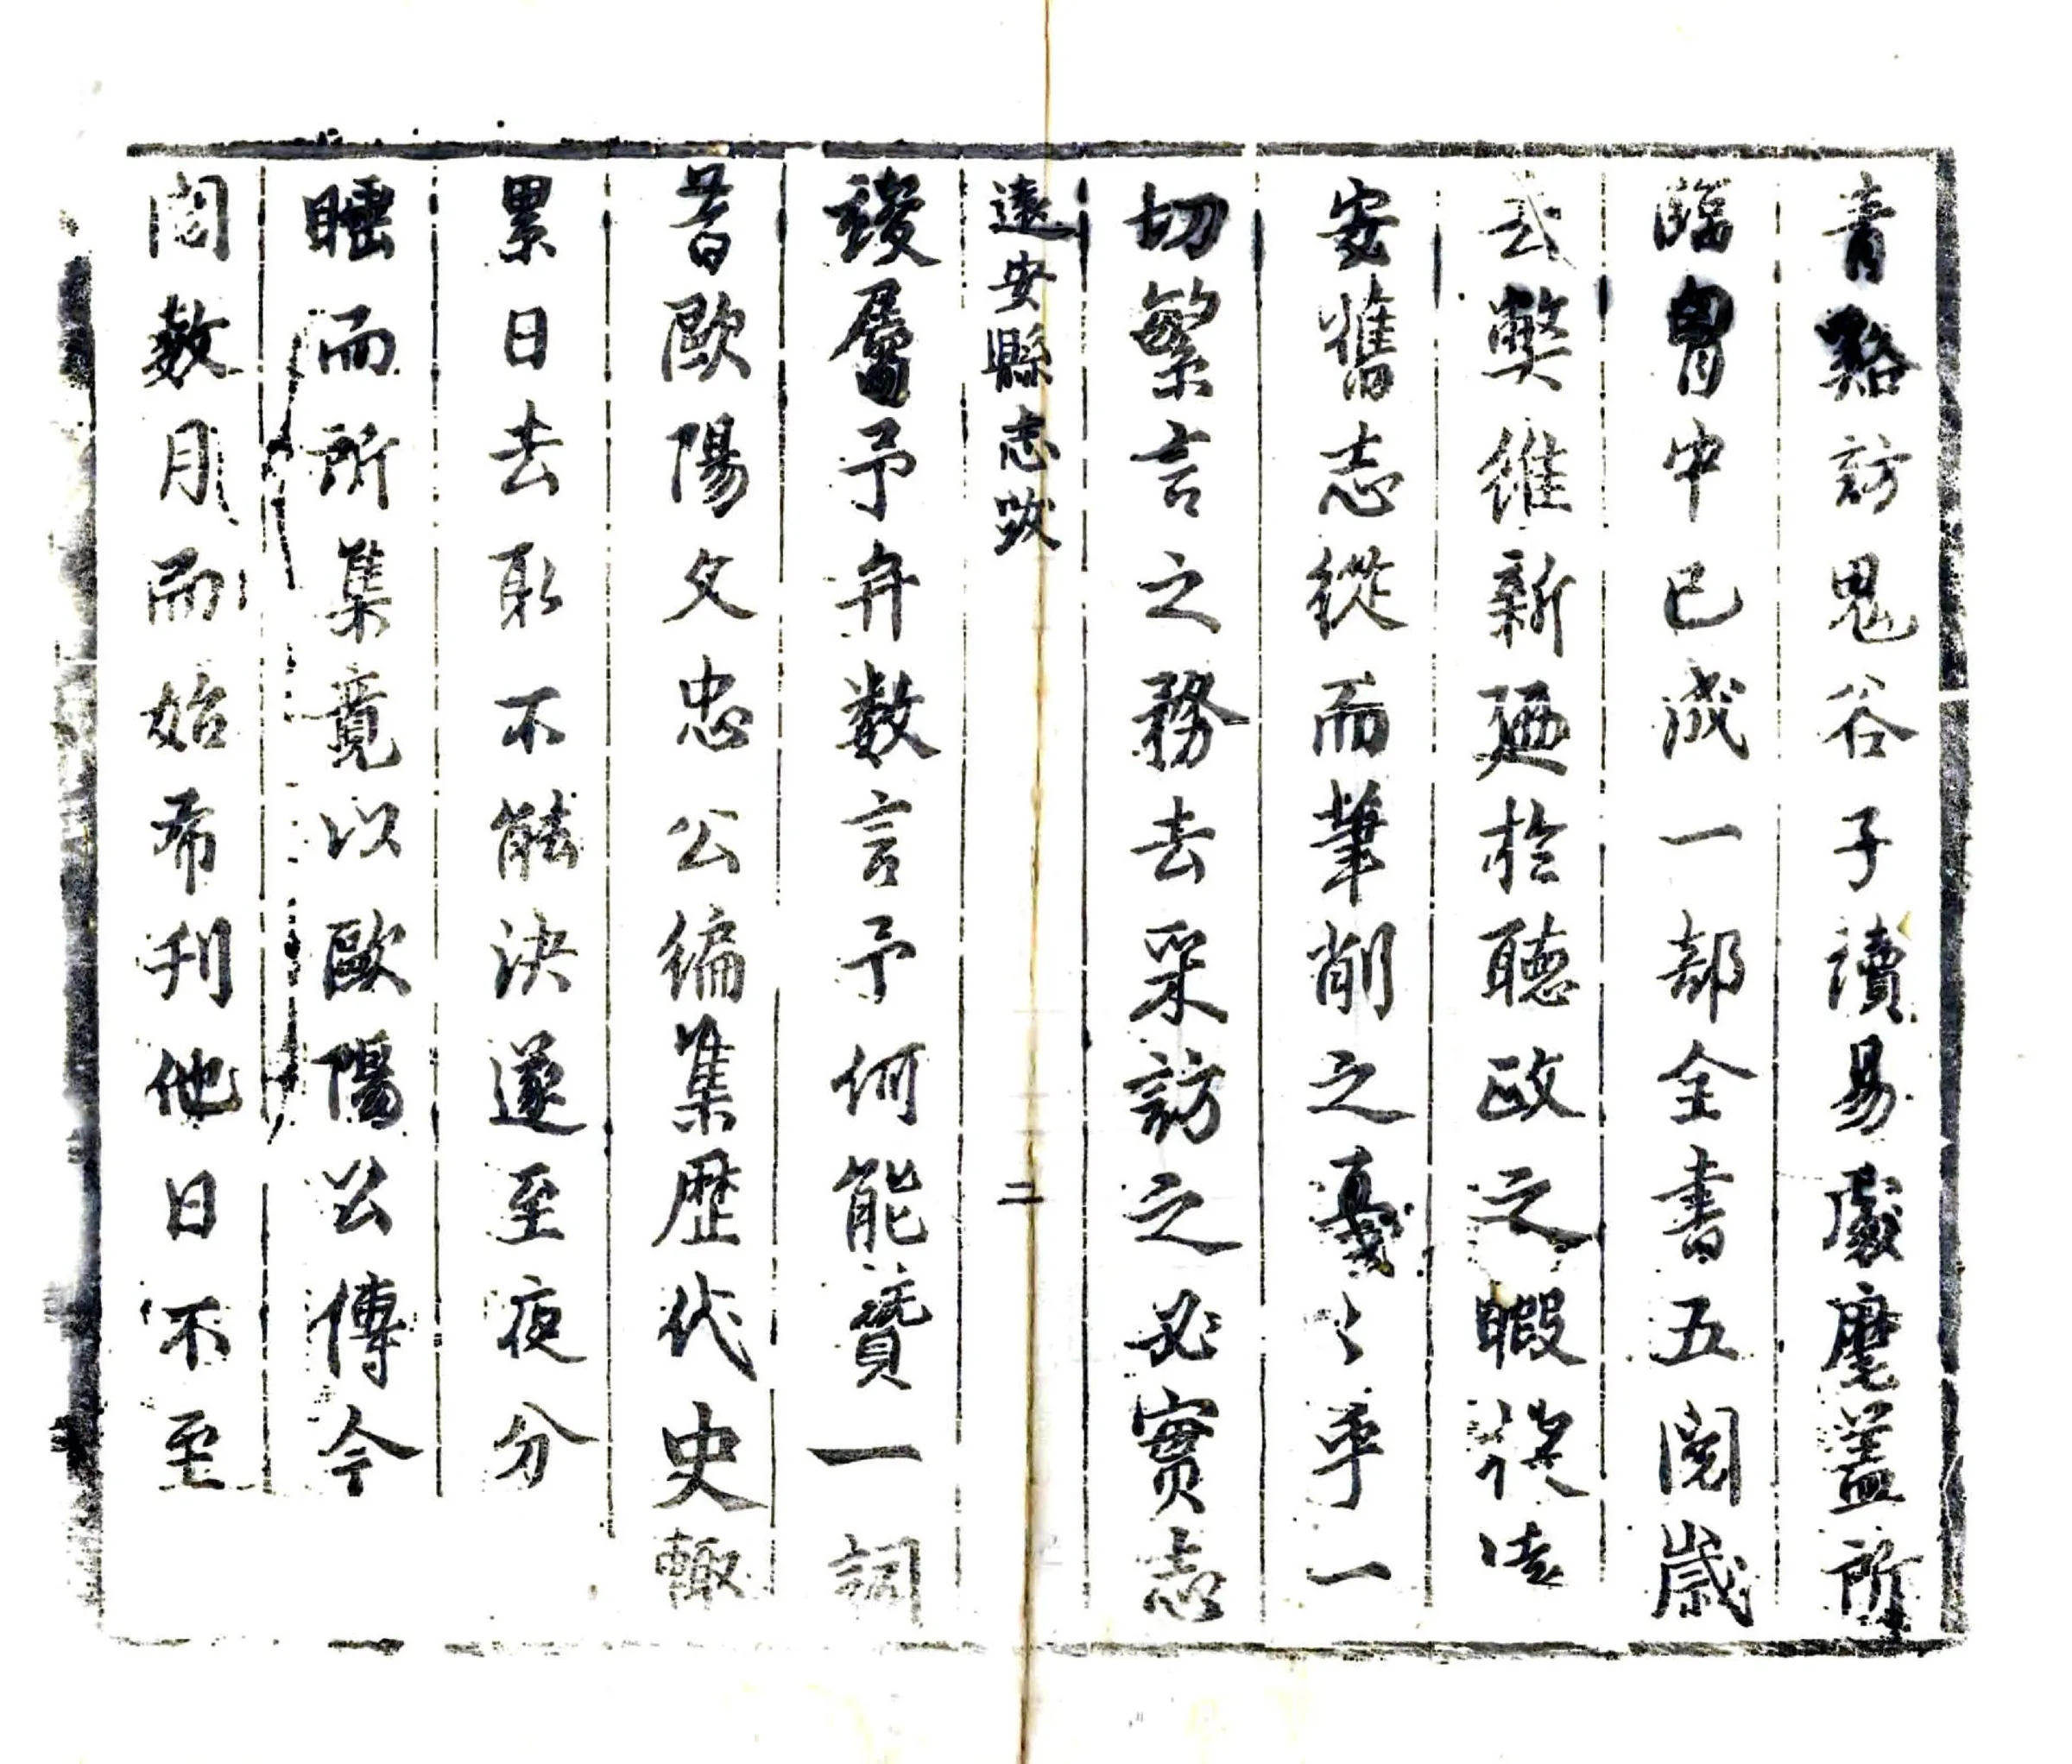 青谿訪鬼谷子讀易處麾蓋所
臨胷中已成一部全書五閱歲
弊維新廼於聽政之暇從遠
安舊志從而筆削之戞々乎一
切繁言之務去采訪之必實志
遠安縣志跋
二
竣屬予弁數言予何能贊一詞
昔歐陽文忠公編集歷代史輙
累日去取不能決遂至夜分
睡而所集竟以歐陽公傳今
閱數月而始希刊他日不至